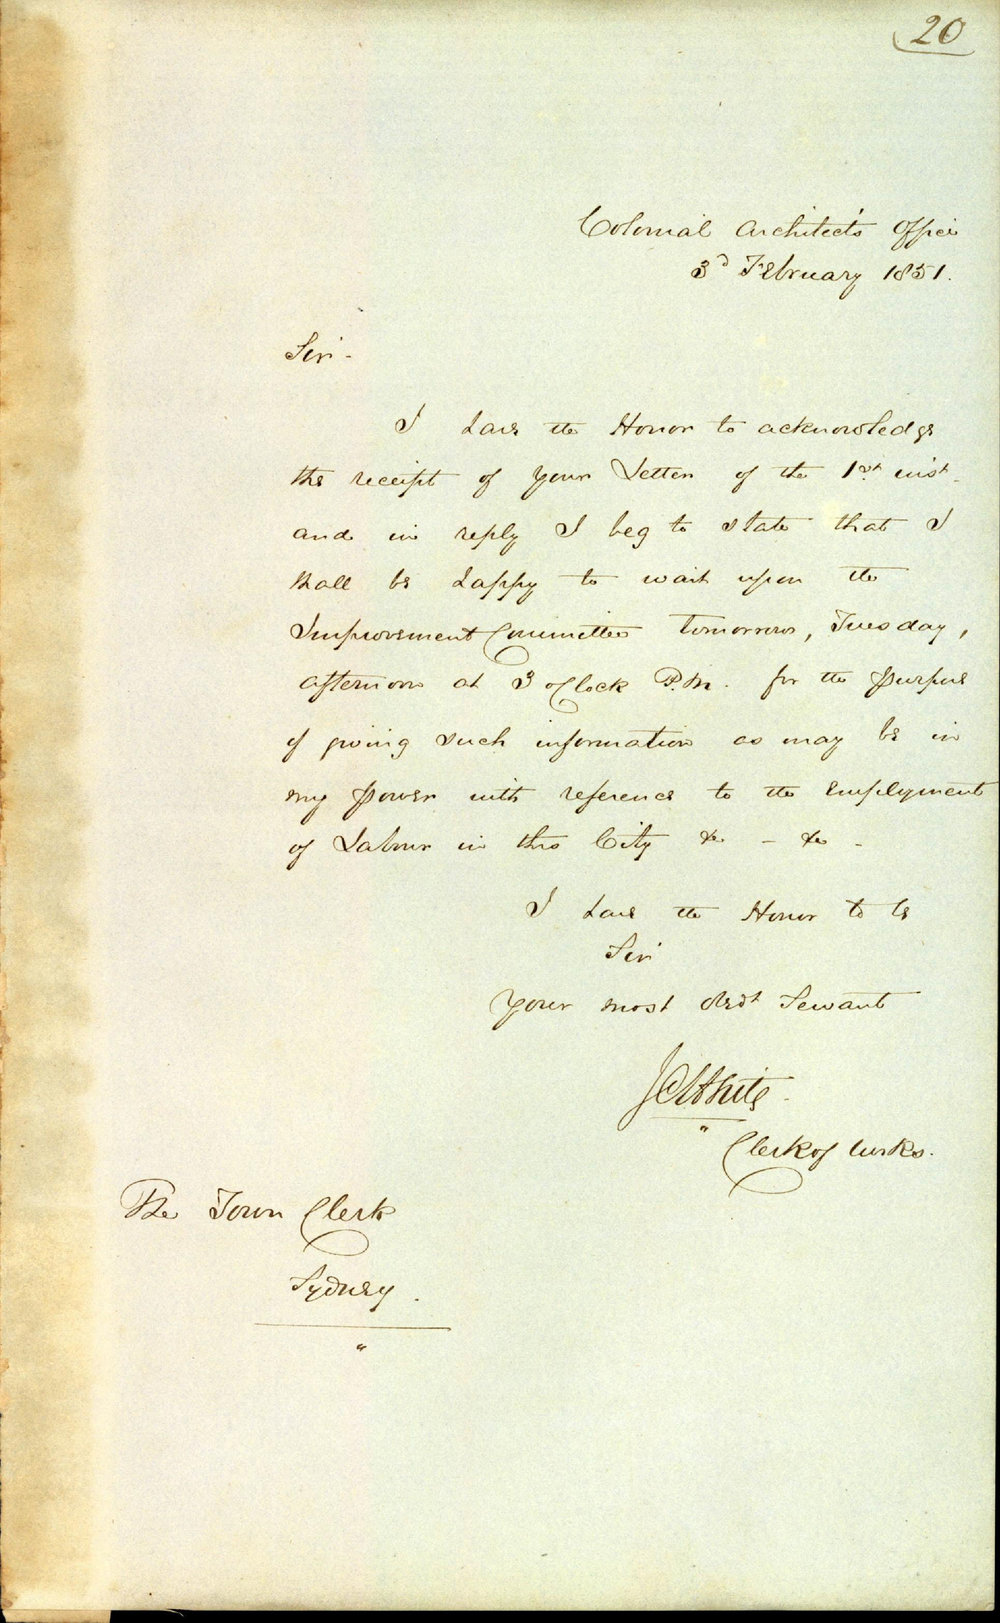 20
Colonial Architect's Office
3d February 1851.
Sir -
I have the Honor to acknowledge
the receipt of your Letter of the 1st inst.
and in reply I beg to state that I
shall be happy to wait upon the
Improvement Committee tomorrow, Tuesday,
afternoon at 3 o'Clock P.M. for the purpose
of giving such information as may be in
my power with reference to the employment
of Labour in this City &c - &c -
I have the Honor to be
Sir
Your most obedt Servant
J C White.
Clerk of Works.
The Town Clerk
Sydney.